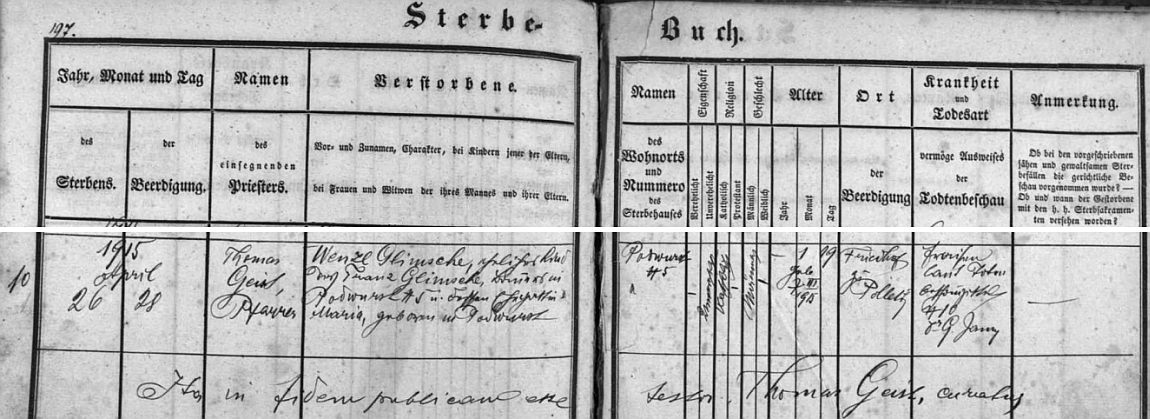 197.
Sterbe-Buch.
Jahr, Monat und Tag
des Sterbens.
der Beerdigung.
Namen
des
einsegnenden
Priesters.
Verstorbene.
Vor- und Zunamen, Charakter, bei Kindern jener der Eltern,
bei Frauen und Witwen der ihres Mannes und ihrer Eltern.
Namen
des
Wohnorts
und
Nummero
des
Sterbehauses
Eigenschaft
Verehelicht
Unverehelicht
Religion
Katholisch
Protestant
Geschlecht
Männlich
Weiblich
Alter
Jahr
Monat
Tag
Ort
der
Beerdigung
Krankheit
und
Todesart
vermöge Ausweises
der
Todtenbeschau
Anmerkung.
Ob bei den vorgeschriebenen
jähen und gewaltsamen Ster-
befällen die gerichtliche Be-
schau vorgenommen wurde? —
Ob und wann der Gestorbene
mit den h. h. Sterbsakramen-
ten versehen worden?
10
1915
April
26 28
Thomas
Geist,
Pfarrer
Wenzl Glimsche, ehelicher Kind
des Franz Glimsche, in
Podwurst 45 u. dessen
Maria, geboren in Podwurst
Podwurst
45
1 19
Friedhof
zu
Polletitz
Fraisen
laut
Ita in fidem publicam esse
testor. Thomas Geist, curatus